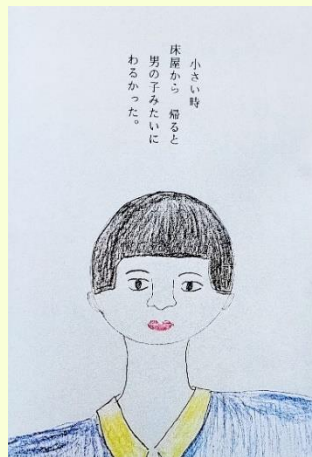 小さい時
床屋から　帰ると
男の子みたいに
わるかった。